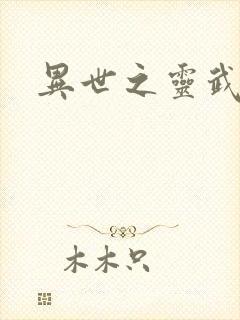 異世之靈武
木木只